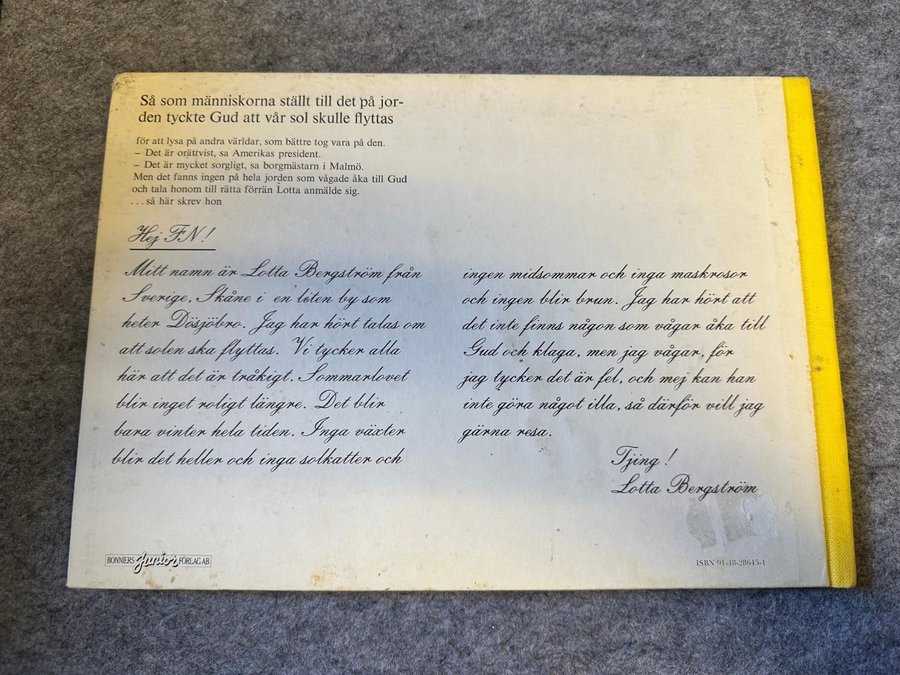 Så som människorna ställt till det på jor-
den tyckte Gud att vår sol skulle flyttas
för att lysa på andra världar, som bättre tog vara på den.
– Det är orättvist, sa Amerikas president.
– Det är mycket sorgligt, sa borgmästarn i Malmö.
Men det fanns ingen på hela jorden som vågade åka till Gud
och tala honom till rätta förrän Lotta anmälde sig.
. . . så här skrev hon
Hej FN!
Mitt namn är Lotta Bergström från
Sverige, Skåne i en liten by som
heter Dösjöbro. Jag har hört talas om
att solen ska flyttas. Vi tycker alla
här att det är tråkigt. Sommarlovet
blir inget roligt längre. Det blir
bara vinter hela tiden. Inga växter
blir det heller och inga solkatter och
ingen midsommar och inga maskrosor
och ingen blir brun. Jag har hört att
det inte finns någon som vågar åka till
Gud och klaga, men jag vågar, för
jag tycker det är fel, och mej kan han
inte göra något illa, så därför vill jag
gärna resa.
Tjing!
Lotta Bergström
BONNIERS Junior FÖRLAG AB
ISBN 91-48-28645-1